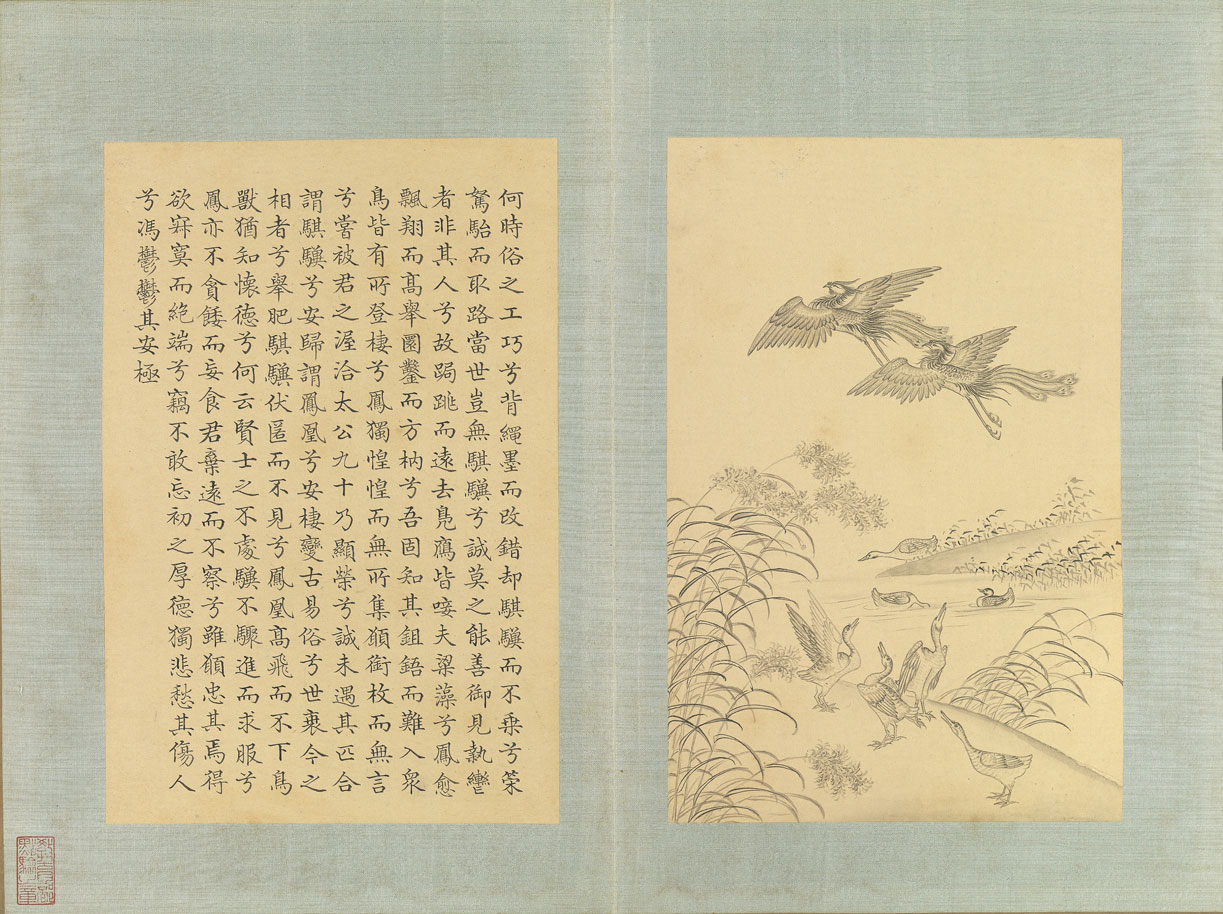 何時俗之工巧兮背繩墨而改錯却騏驥而不乗兮策
駑駘而取路當世豈無騏驥兮誠莫之能善御見執轡
者非其人兮故跼跳而遠去鳬鴈皆唼夫粱藻兮鳳愈
飄翔而高舉圜鑿而方枘兮吾固知其鉏鋙而難入衆
鳥皆有所登棲兮鳳獨惶惶而無所集願銜枚而無言
兮嘗被君之渥洽太公九十乃顯榮兮誠未遇其匹合
謂騏驥兮安歸謂鳳凰兮安棲變古易俗兮世衰今之
相者兮舉肥騏驥伏匿而不見兮鳳凰高飛而不下鳥
獸猶知懐德兮何云賢士之不處驥不驟進而求服兮
鳳亦不貪餧而妄食君棄遠而不察兮雖願忠其焉得
欲寂寞而絶端兮竊不敢忘初之厚德獨悲愁其傷人
兮馮鬱鬱其安極